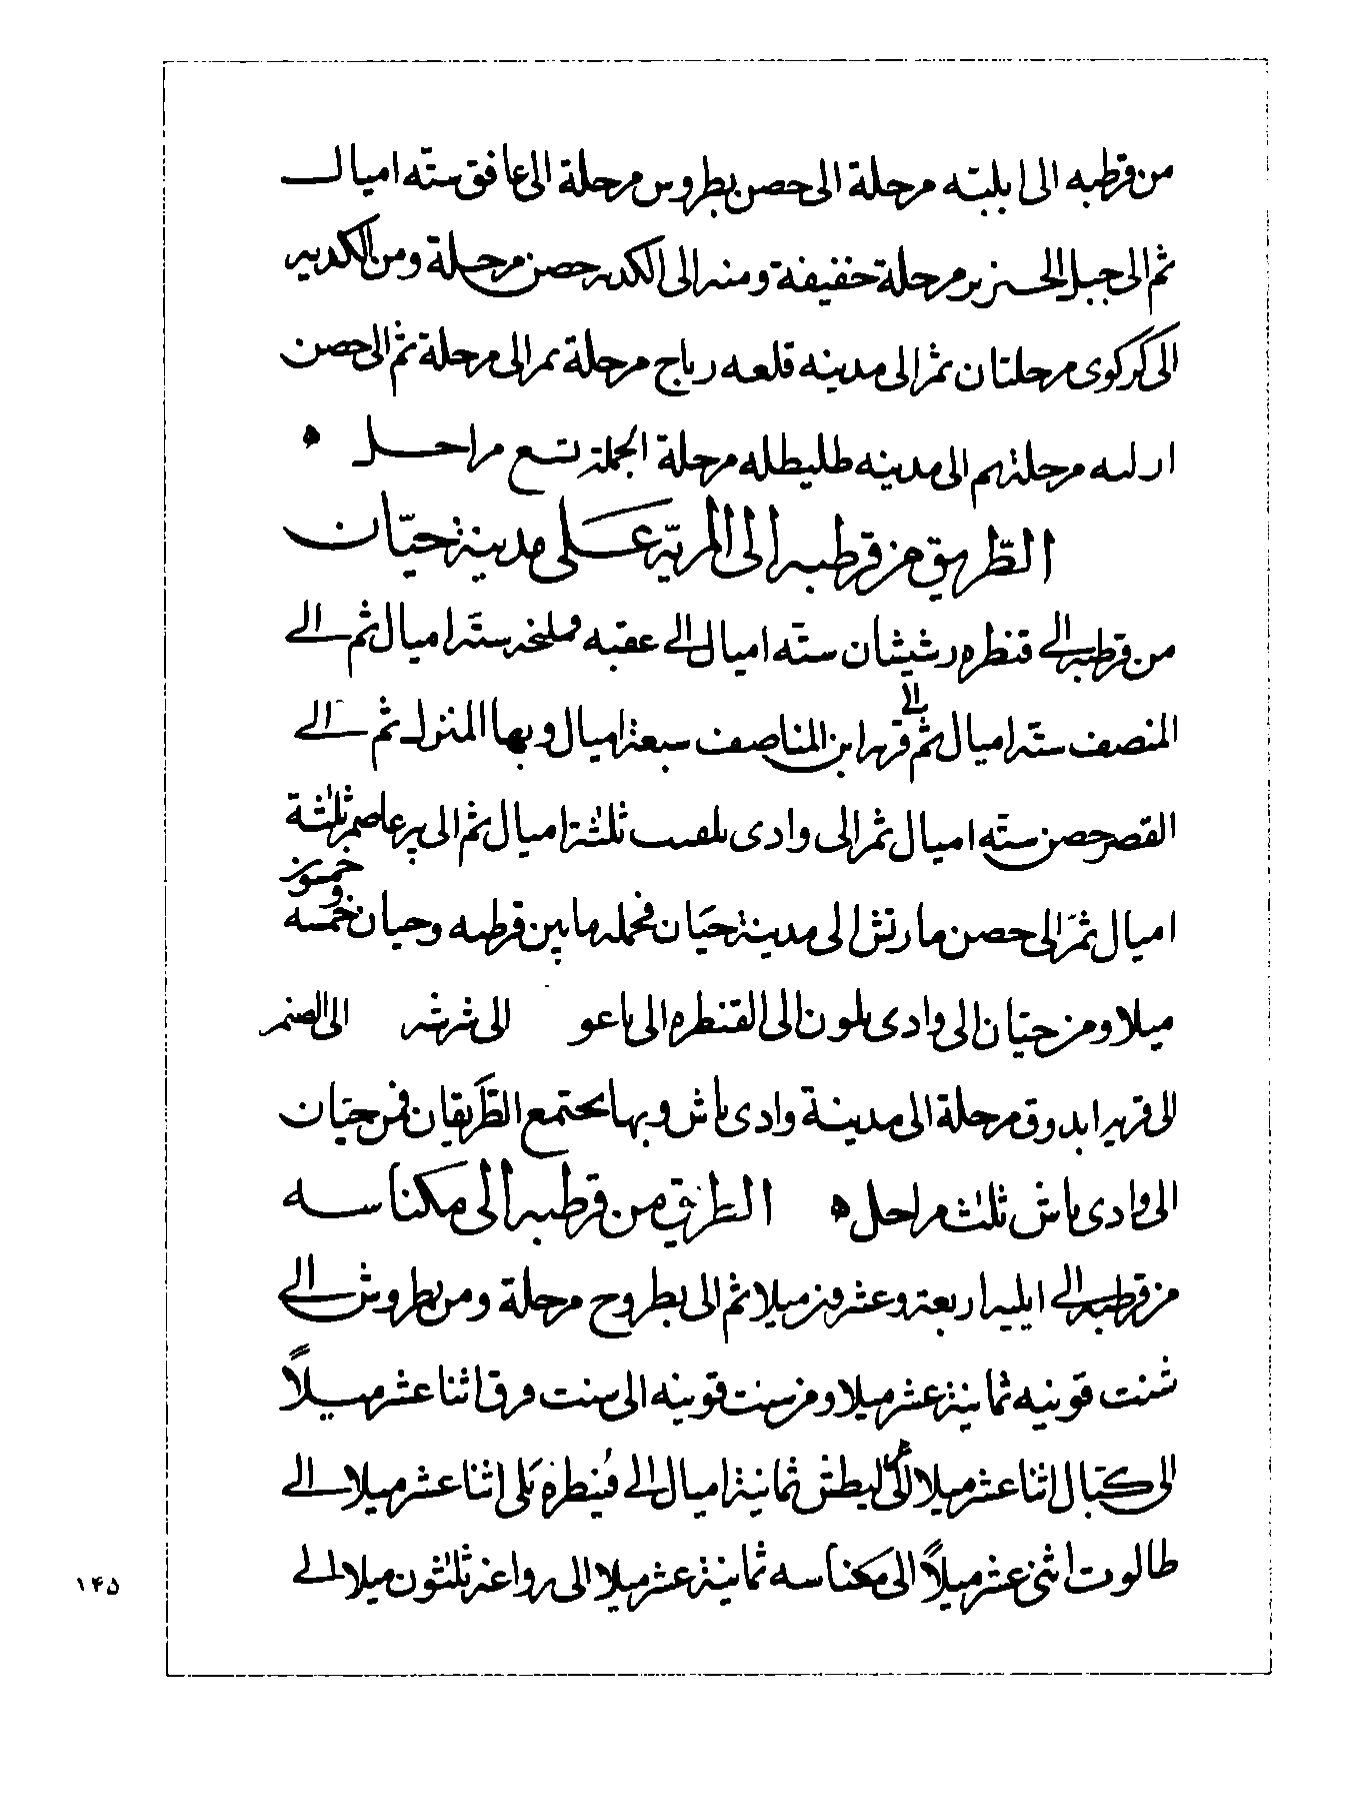 من قرطبه الى ابلبّه مرحلة الى حصن بطروس مرحلة الى عافق ستّه اميال
ثم الى جبل الخنزير مرحلة خفيفة ومنه الى الكدىه حصن مرحلة ومن الكدىيه
الى كركوى مرحلتان ثم الى مدينه قلعه رباح مرحلة ثم الى مرحلة ثم الى حصن
مرحلة ثم الى مدينه طليطله مرحلة الجملة تسع مراحل ه
الطّريق من قرطبه الى المريّة على مدينة جيّان
من قرطبه الى قنطره رشيشان ستّه اميال الى عقبه ستّه اميال ثم الى
المنصف ستّه اميال ثم الى قريه ابن المناصف سبعة اميال وبها المنزل ثم الى
القصر حصن ستّه اميال ثم الى وادى ثلثة اميال ثم الى بير عاصم ثلثة
اميال ثمّ الى حصن مارتش الى مدينة جيّان فجمله ما بين قرطبه وجيان خمسه وخمسون
ميلا ومن جيّان الى وادى بلون الى القنطره الى باعو الى شرشه الى الصنم
الى قريه ابدوق مرحلة الى مدينة وادى ياش وبها يجتمع الطّريقان فمن جيّان
الى وادى ياش ثلث مراحل ه الطّريق من قرطبه الى مكناسه
من قرطبه الى ابلبه اربعة وعشرون ميلا ثم الى بطروح مرحلة ومن بطروش الى
شنت قونيه ثمانية عشر ميلا ومن سنت قونيه الى سنت ورق اثنا عشر ميلاً
الى كتبال اثنا عشر ميلا ثم الى لبطش ثمانية اميال الى قنيطره بلى اثنا عشر ميلا الى
طالوت اثنى عشر ميلاً الى مكناسه ثمانية عشر ميلا الى ثلثون ميلا الى
۱۴۵